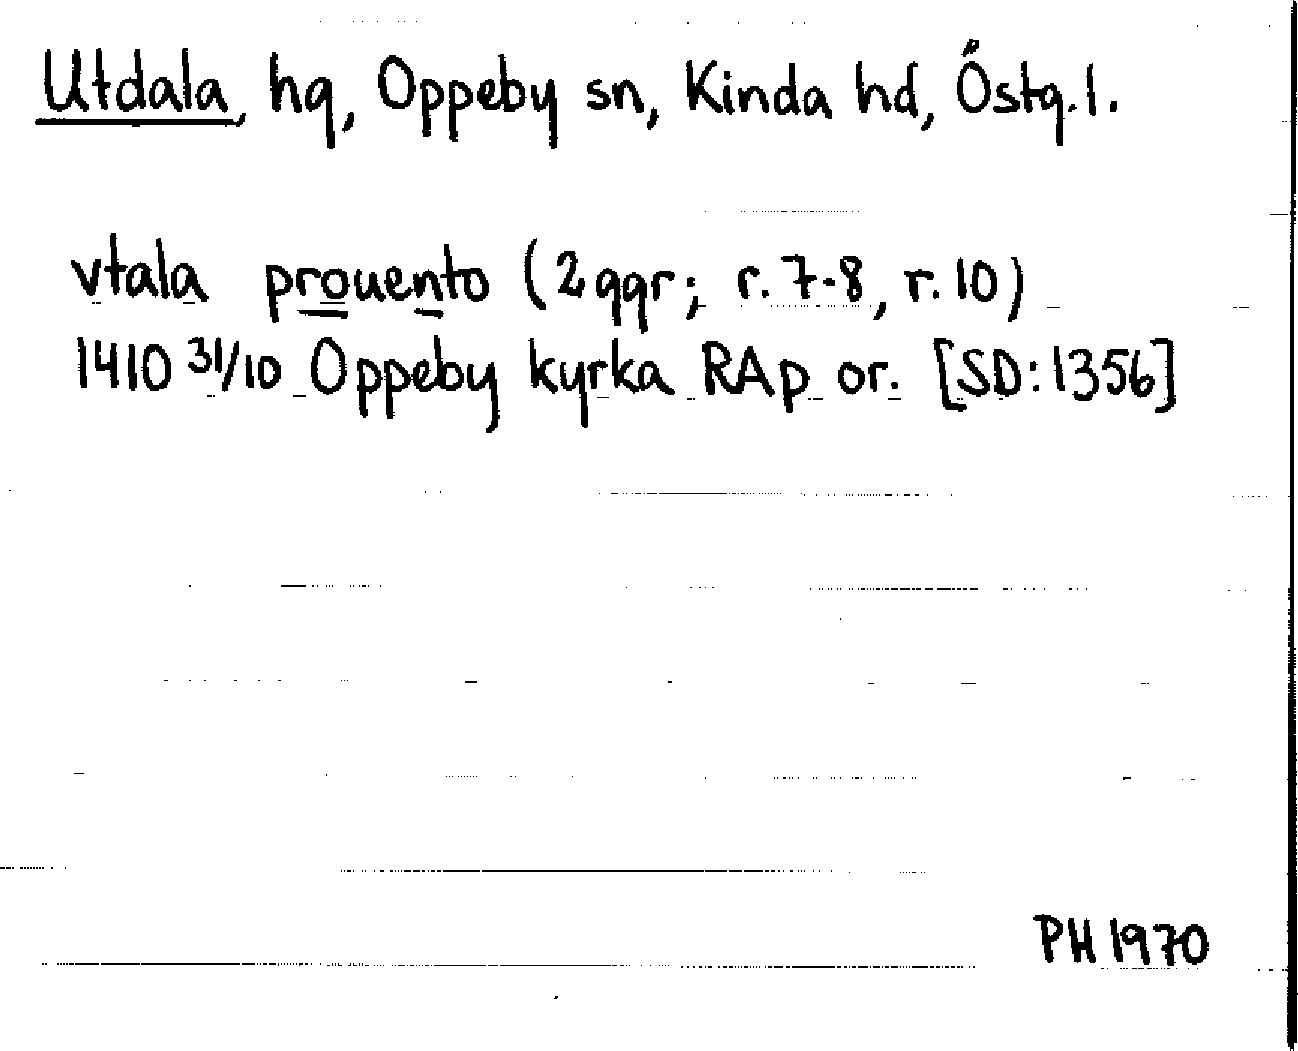 Utdala, hg, Oppeby sn, Kinda hd, Östg.l.
vtala prouento (2 ggr; r. 7-8, r. 10)
1410 31/10 Oppeby kyrka RAp or. [SD:1356]
PH 1970